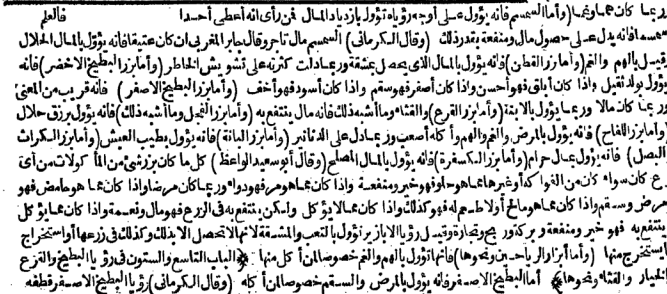 ربما كان هما وغما (وأما السمسم) فانه يؤول على أوجه رؤياه تؤول بازدياد المال فمن رأى انه أعطى أحدا
سمسما فانه يدل على حصول مال ومنفعة بقدر ذلك (وقال الكرماني) السمسم مال تاجر وقال جابر المغربي ان كان عتيقا فانه يؤول بالمال الحلال
وقيل بالهم والغم (وأما بزر القطن) فانه يؤول بالمال الذى يحصل بمشقة وربما دلت كثرته على تشويش الخاطر (وأما بزر البطيخ الاخضر) فانه
يؤول بولد ثقيل واذا كان أبلق فهو أحسن واذا كان أصفر فهو سقم واذا كان أسود فهو أخف (وأما بزر البطيخ الاصفر) فانه قريب من المعنى
ربما كان مالا وربما يؤول بالابقة (وأما بزر القرع) والقثاء وما أشبه ذلك فانه مال ينتفع به (وأما بزر الفجل وما أشبه ذلك) فانه يؤول برزق حلال
(وأما بزر اللفاح) فانه يؤول بالمرض والغم والهم وأكله أصعب وربما يدل على الدنانير (وأما بزر البانة) فانه يؤول بطيب العيش (وأما بزر الكراث
البصل) فانه يؤول بمال حرام (وأما بزر الكسفرة) فانه يؤول بالمال المصلح (وقال أبو سعيد الواعظ) كل ما كان بزر شئ من المأكولات من أى
ع كان سواء كان من الفواكه أو غيرها مما هو حلو فهو خير ومنفعة واذا كان مما هو مر فهو دواء وربما كان مرضا واذا كان مما هو حامض فهو
مرض وسقم واذا كان مما هو مالح أو لا طعم له فهو كذلك واذا كان مما لا يؤكل ولكن ينتفع به فى الزرع فهو مال ونعمة واذا كان مما يؤكل
ينتفع به فهو خير ومنفعة وبركة وربح وتجارة وقيل رؤيا الابازير تؤول بالتعب والمشقة لانها لا تحصل الا بذلك وكذلك فى زرعها أو استخراج
استخرج منها (وأما أبزار الرياحين ونحوها) فانها تؤول بالهم والغم خصوصا لمن أكل منها الباب التاسع والستون فى رؤيا البطيخ والقرع
الخيار والقثاء ونحوها أما البطيخ الاصفر فانه يؤول بالمرض والسقم خصوصا لمن أكله (وقال الكرمانى) رؤيا البطيخ الاصفر قطفه